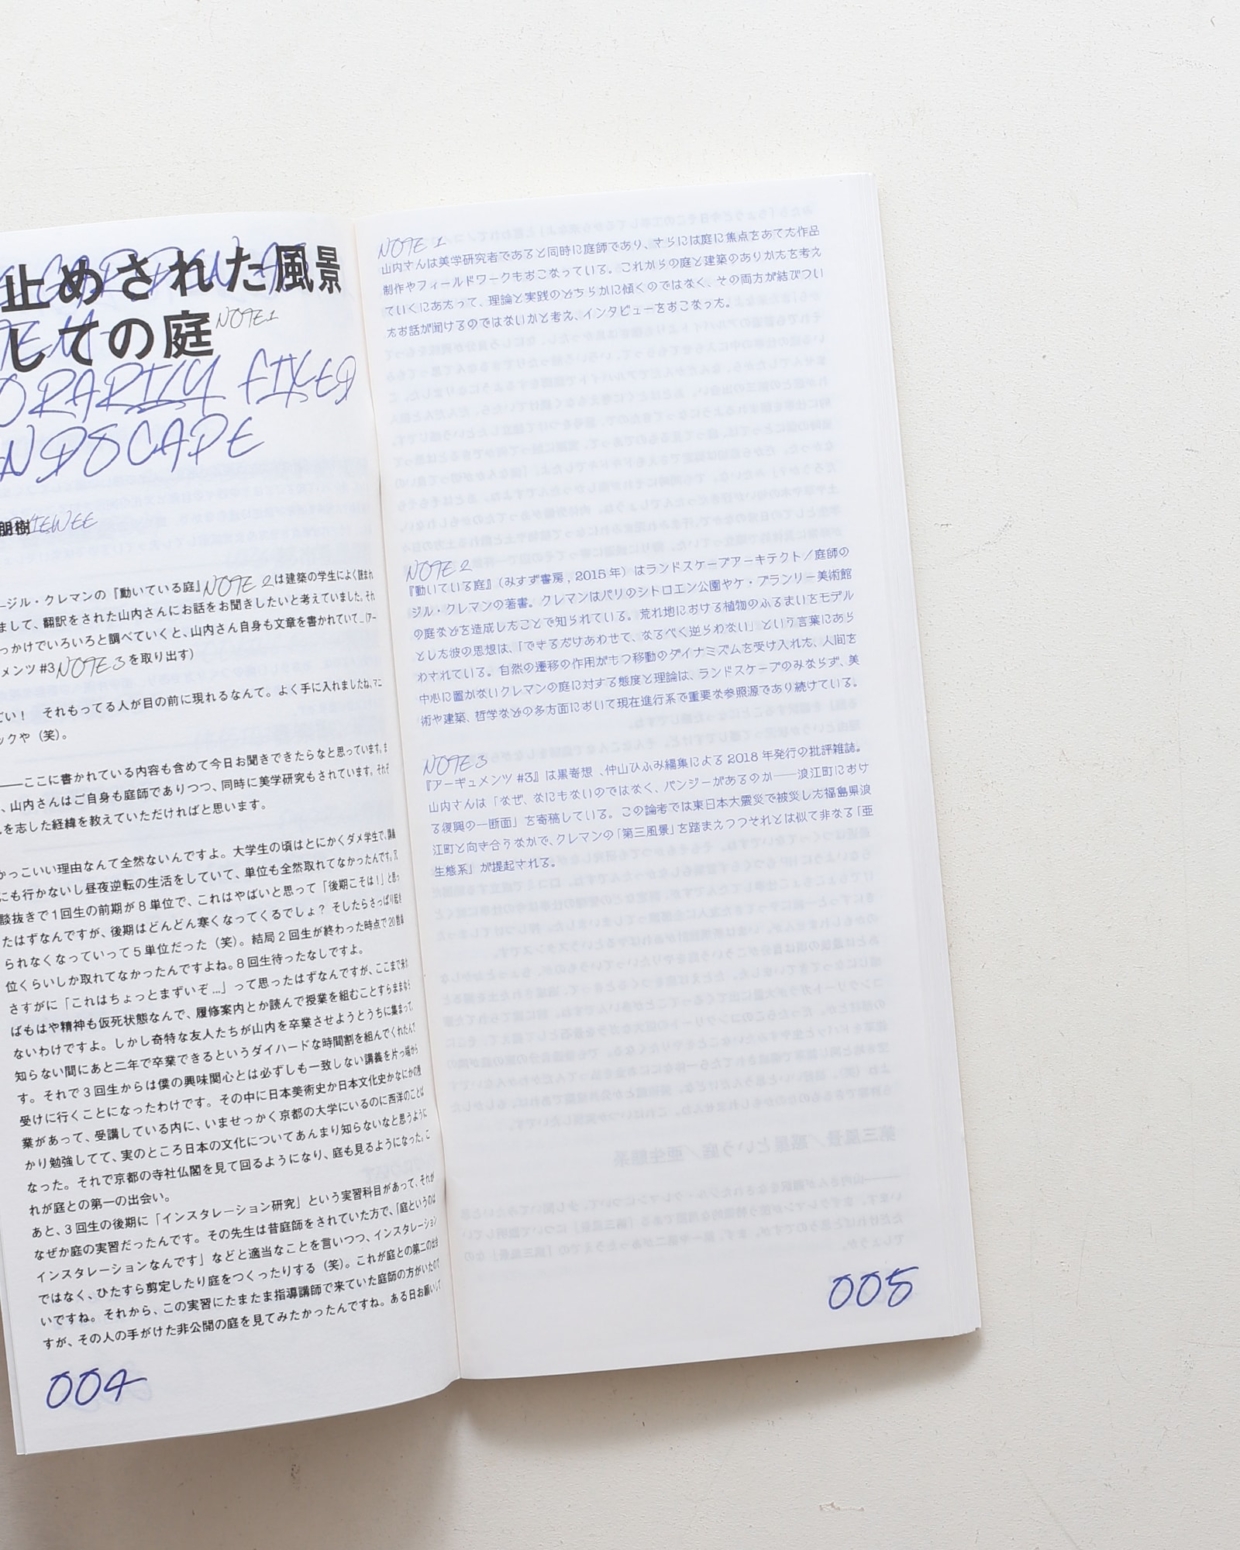 止めされた風景
しての庭 NOTE 1
ORARILY FIXED
NDSCAPE
朋樹
ジル・クレマンの『動いている庭』NOTE 2は建築の学生によく読まれ
まして、翻訳をされた山内さんにお話をお聞きしたいと考えていました。それ
っかけでいろいろと調べていくと、山内さん自身も文章を書かれていて…(アー
メンツ #3 NOTE 3を取り出す)
ごい！　それもってる人が目の前に現れるなんて。よく手に入れましたね。マニ
ックや（笑）。
――ここに書かれている内容も含めて今日お聞きできたらなと思っています。ま
、山内さんはご自身も庭師でありつつ、同時に美学研究もされています。それぞ
を志した経緯を教えていただければと思います。
かっこいい理由なんて全然ないんですよ。大学生の頃はとにかくダメ学生で、講義
にも行かないし昼夜逆転の生活をしていて、単位も全然取れてなかったんです。冗
談抜きで1回生の前期が8単位で、これはやばいと思って「後期こそは！」と思っ
たはずなんですが、後期はどんどん寒くなってくるでしょ？ そしたらさっぱり起き
られなくなっていって5単位だった（笑）。結局2回生が終わった時点で20数単
位くらいしか取れてなかったんですよね。8回生待ったなしですよ。
さすがに「これはちょっとまずいぞ…」って思ったはずなんですが、ここまで来れ
ばもはや精神も仮死状態なんで、履修案内とか読んで授業を組むことすらままなら
ないわけですよ。しかし奇特な友人たちが山内を卒業させようとうちに集まって、
知らない間にあと二年で卒業できるというダイハードな時間割を組んでくれたんで
す。それで3回生からは僕の興味関心とは必ずしも一致しない講義を片っ端から
受けに行くことになったわけです。その中に日本美術史か日本文化史かなにかの授
業があって、受講している内に、いませっかく京都の大学にいるのに西洋のことば
かり勉強してて、実のところ日本の文化についてあんまり知らないなと思うように
なった。それで京都の寺社仏閣を見て回るようになり、庭も見るようになった。こ
れが庭との第一の出会い。
あと、3回生の後期に「インスタレーション研究」という実習科目があって、それが
なぜか庭の実習だったんです。その先生は昔庭師をされていた方で、「庭というのは
インスタレーションなんです」などと適当なことを言いつつ、インスタレーション
ではなく、ひたすら剪定したり庭をつくったりする（笑）。これが庭との第二の出会
いですね。それから、この実習にたまたま指導講師で来ていた庭師の方がいたので
すが、その人の手がけた非公開の庭を見てみたかったんですね。ある日お願いして
004
NOTE 1
山内さんは美学研究者であると同時に庭師であり、さらには庭に焦点をあてた作品
制作やフィールドワークもおこなっている。これからの庭と建築のありかたを考え
ていくにあたって、理論と実践のどちらかに傾くのではなく、その両方が結びつい
たお話が聞けるのではないかと考え、インタビューをおこなった。
NOTE 2
『動いている庭』（みすず書房, 2015年）はランドスケープアーキテクト／庭師の
ジル・クレマンの著書。クレマンはパリのシトロエン公園やケ・ブランリー美術館
の庭などを造成したことで知られている。荒れ地における植物のふるまいをモデル
とした彼の思想は、「できるだけあわせて、なるべく逆らわない」という言葉にあら
わされている。自然の遷移の作用がもつ移動のダイナミズムを受け入れた、人間を
中心に置かないクレマンの庭に対する態度と理論は、ランドスケープのみならず、美
術や建築、哲学などの多方面において現在進行系で重要な参照源であり続けている。
NOTE 3
『アーギュメンツ #3』は黒嵜想 、仲山ひふみ編集による 2018 年発行の批評雑誌。
山内さんは「なぜ、なにもないのではなく、パンジーがあるのか――浪江町におけ
る復興の一断面」を寄稿している。この論考では東日本大震災で被災した福島県浪
江町と向き合うなかで、クレマンの「第三風景」を踏まえつつそれとは似て非なる「亜
生態系」が提起される。
005